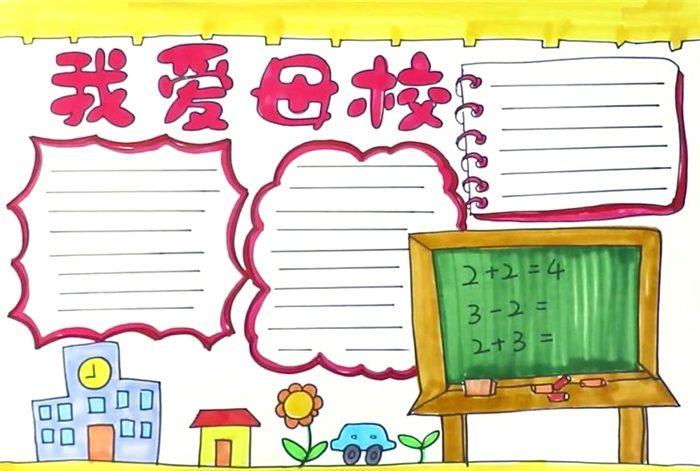 我爱母校
2+2=4
3-2=
2+3=